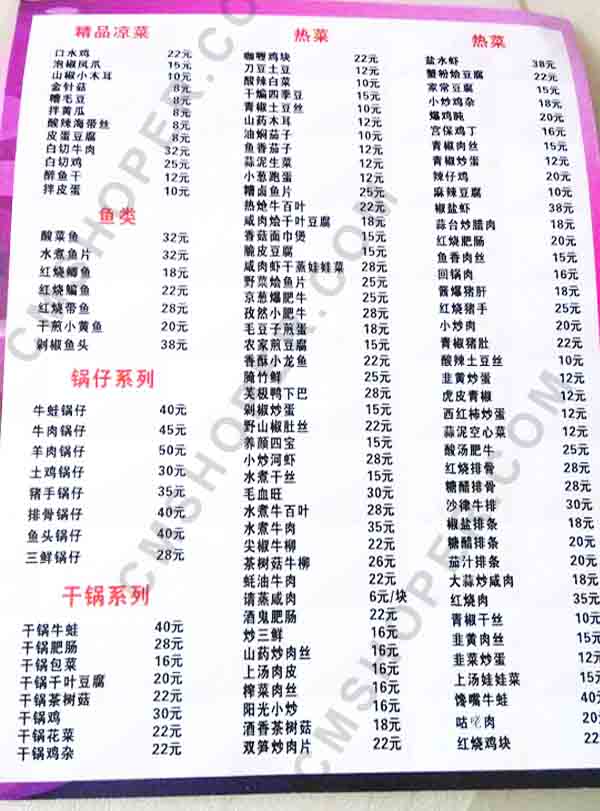 精品凉菜
口水鸡 22元
泡椒凤爪 15元
山椒小木耳 10元
金针菇 8元
糟毛豆 8元
拌黄瓜 8元
酸辣海带丝 8元
皮蛋豆腐 8元
白切牛肉 32元
白切鸡 25元
醉鱼干 12元
拌皮蛋 10元
鱼类
酸菜鱼 32元
水煮鱼片 32元
红烧鲫鱼 18元
红烧鳊鱼 22元
红烧带鱼 28元
干煎小黄鱼 20元
剁椒鱼头 38元
锅仔系列
牛蛙锅仔 40元
牛肉锅仔 45元
羊肉锅仔 50元
土鸡锅仔 30元
猪手锅仔 35元
排骨锅仔 40元
鱼头锅仔 40元
三鲜锅仔 28元
干锅系列
干锅牛蛙 40元
干锅肥肠 28元
干锅包菜 16元
干锅千叶豆腐 20元
干锅茶树菇 22元
干锅鸡 30元
干锅花菜 22元
干锅鸡杂 22元
热菜
咖喱鸡块 22元
刀豆土豆 12元
酸辣白菜 10元
干煸四季豆 15元
青椒土豆丝 10元
山药木耳 12元
油焖茄子 10元
鱼香茄子 12元
蒜泥生菜 12元
小葱跑蛋 12元
糟卤鱼片 25元
热炝牛百叶 22元
咸肉烩千叶豆腐 18元
香菇面巾煲 15元
脆皮豆腐 15元
咸肉虾干蒸娃娃菜 28元
野菜烩鱼片 25元
京葱爆肥牛 25元
孜然小肥牛 28元
毛豆子煎蛋 18元
农家煎豆腐 15元
香酥小龙鱼 22元
腌竹鲜 25元
芙极鸭下巴 28元
剁椒炒蛋 15元
野山椒肚丝 22元
养颜四宝 15元
小炒河虾 28元
水煮干丝 15元
毛血旺 30元
水煮牛百叶 28元
水煮牛肉 35元
尖椒牛柳 22元
茶树菇牛柳 26元
蚝油牛肉 22元
请蒸咸肉 6元/块
酒鬼肥肠 22元
炒三鲜 16元
山药炒肉丝 16元
上汤肉皮 16元
榨菜肉丝 16元
阳光小炒 16元
酒香茶树菇 18元
双笋炒肉片 22元
热菜
盐水虾 38元
蟹粉烩豆腐 22元
家常豆腐 15元
小炒鸡杂 18元
爆鸡肫 20元
宫保鸡丁 16元
青椒肉丝 15元
青椒炒蛋 12元
辣仔鸡 20元
麻辣豆腐 10元
椒盐虾 38元
蒜台炒腊肉 18元
红烧肥肠 20元
鱼香肉丝 15元
回锅肉 16元
酱爆猪肝 18元
红烧猪手 25元
小炒肉 20元
青椒猪肚 22元
酸辣土豆丝 10元
韭黄炒蛋 12元
虎皮青椒 12元
西红柿炒蛋 12元
蒜泥空心菜 12元
酸汤肥牛 25元
红烧排骨 28元
糖醋排骨 28元
沙律牛排 30元
椒盐排条 18元
糖醋排条 20元
茄汁排条 20元
大蒜炒咸肉 18元
红烧肉 35元
青椒干丝 10元
韭黄肉丝 15元
韭菜炒蛋 12元
上汤娃娃菜 15元
馋嘴牛蛙 40元
咕咾肉 20元
红烧鸡块 22元
CMSHOPER.COM
CMSHOPER.COM
CMSHOPER.COM